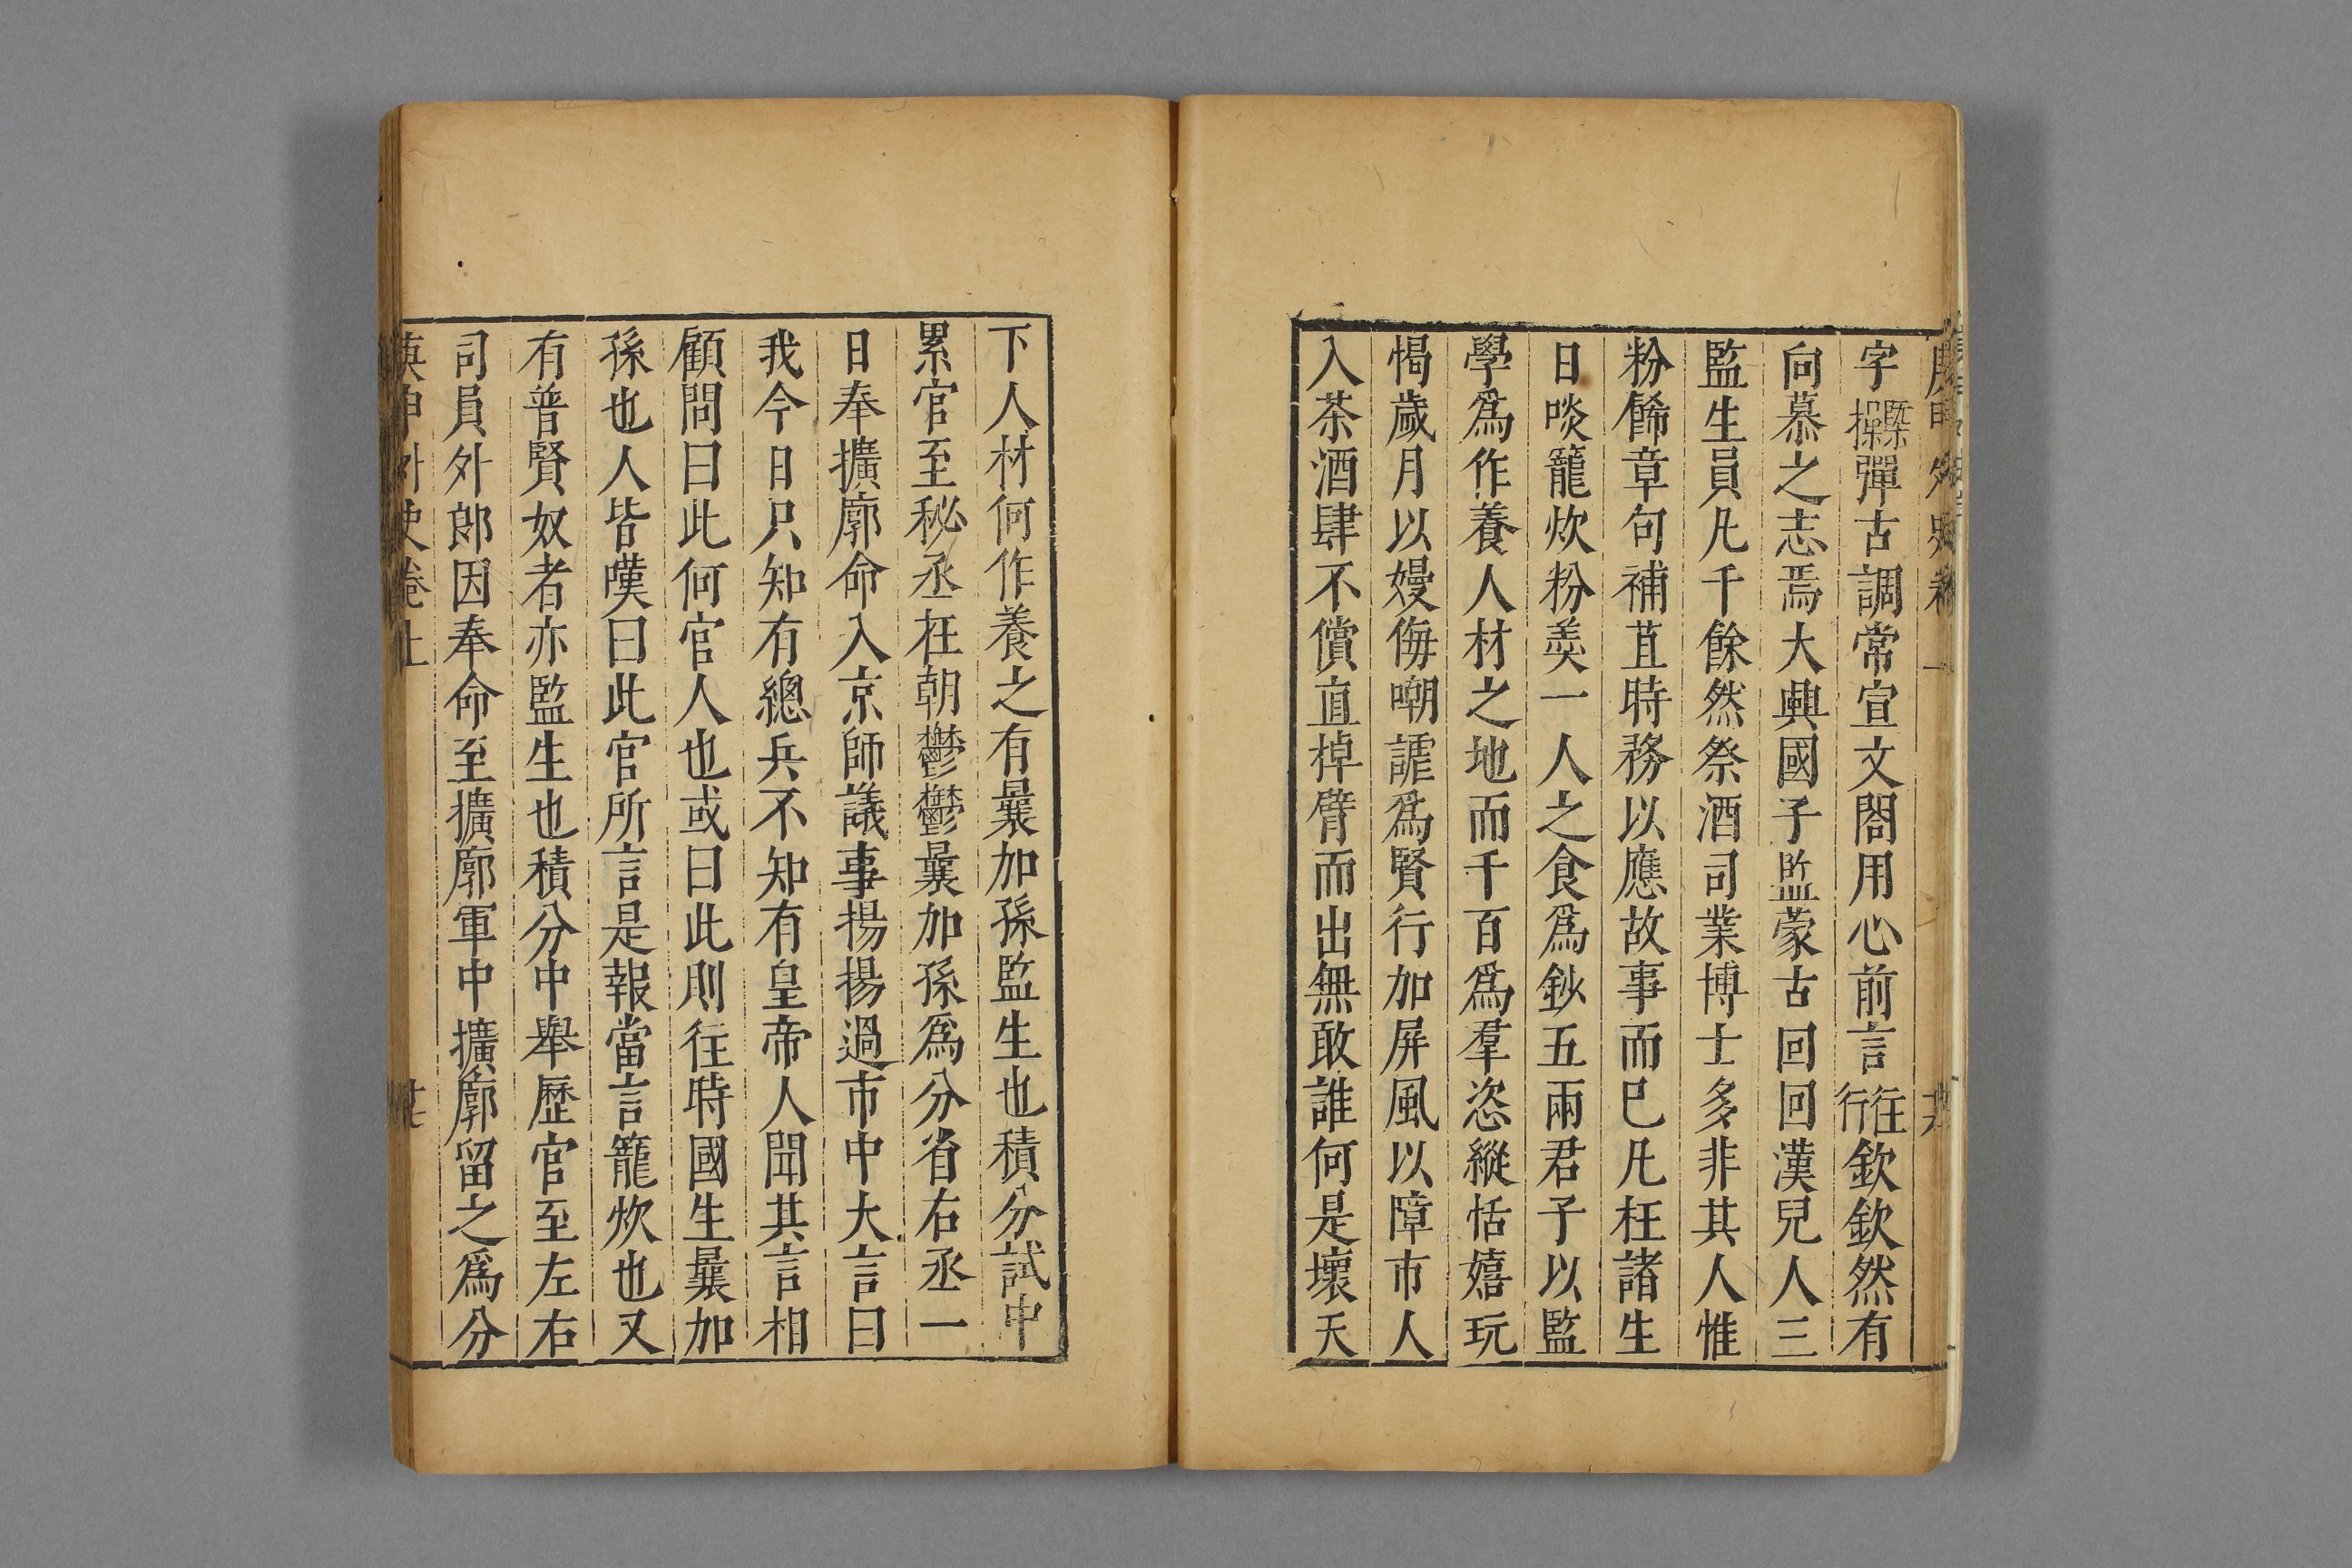 字操縵彈古調常宣文閣用心前言往行欽欽然有
向慕之志焉大興國子監蒙古回回漢兒人三
監生員凡千餘然祭酒司業博士多非其人惟
粉餙章句補苴時務以應故事而已凡在諸生
日啖籠炊粉羹一人之食爲鈔五兩君子以監
學爲作養人材之地而千百爲羣恣縱恬嬉玩
愒歲月以嫚侮嘲謔爲賢行加屏風以障市人
入茶酒肆不償直掉臂而出無敢誰何是壞天
下人材何作養之有㬥加孫監生也積分試中
累官至秘丞在朝鬱鬱㬥加孫爲分省右丞一
日奉擴廓命入京師議事揚揚過市中大言曰
我今日只知有總兵不知有皇帝人聞其言相
顧問曰此何官人也或曰此則往時國生㬥加
孫也人皆嘆曰此官所言是報當言籠炊也又
有普賢奴者亦監生也積分中舉歷官至左右
司員外郎因奉命至擴廓軍中擴廓留之爲分
庚申外史卷上